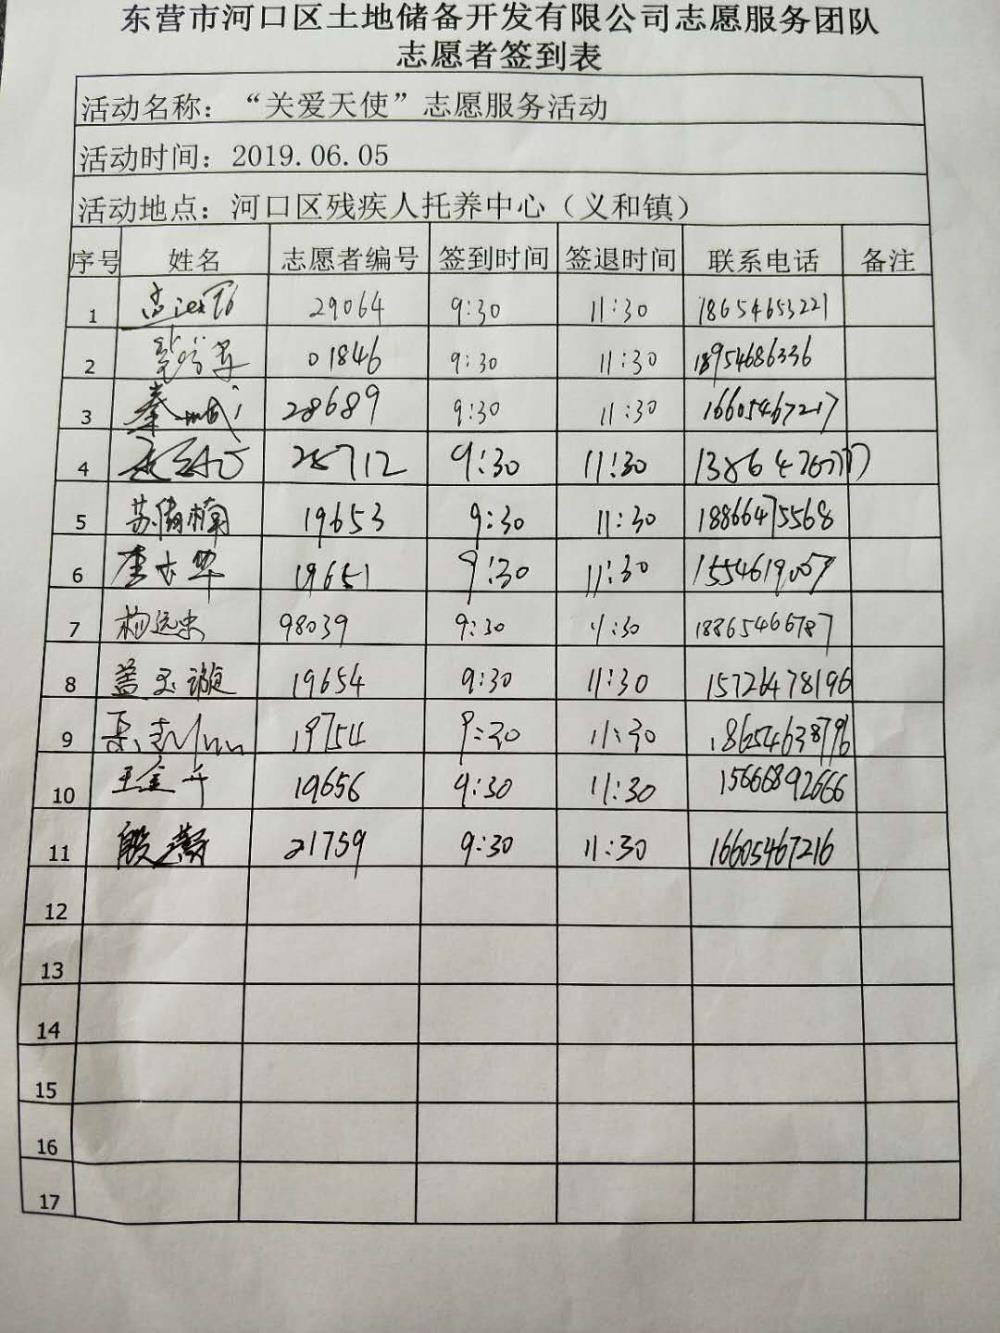 东营市河口区土地储备开发有限公司志愿服务团队
志愿者签到表
活动名称：“关爱天使”志愿服务活动
活动时间：2019.06.05
活动地点：河口区残疾人托养中心（义和镇）
序号 姓名 志愿者编号 签到时间 签退时间 联系电话 备注
1 29064 9:30 11:30 18654653221
2 01846 9:30 11:30 18954686336
3 28689 9:30 11:30 16605467217
4 28712 9:30 11:30
5 19653 9:30 11:30 18866475568
6 19651 9:30 11:30 1554619007
7 杨远忠 98039 9:30 11:30 18865466787
8 盖玉漩 19654 9:30 11:30 15726478196
9 19754 9:30 11:30 18654638796
10 王金平 19656 9:30 11:30 15666892666
11 殷 21759 9:30 11:30 16605467216
12
13
14
15
16
17